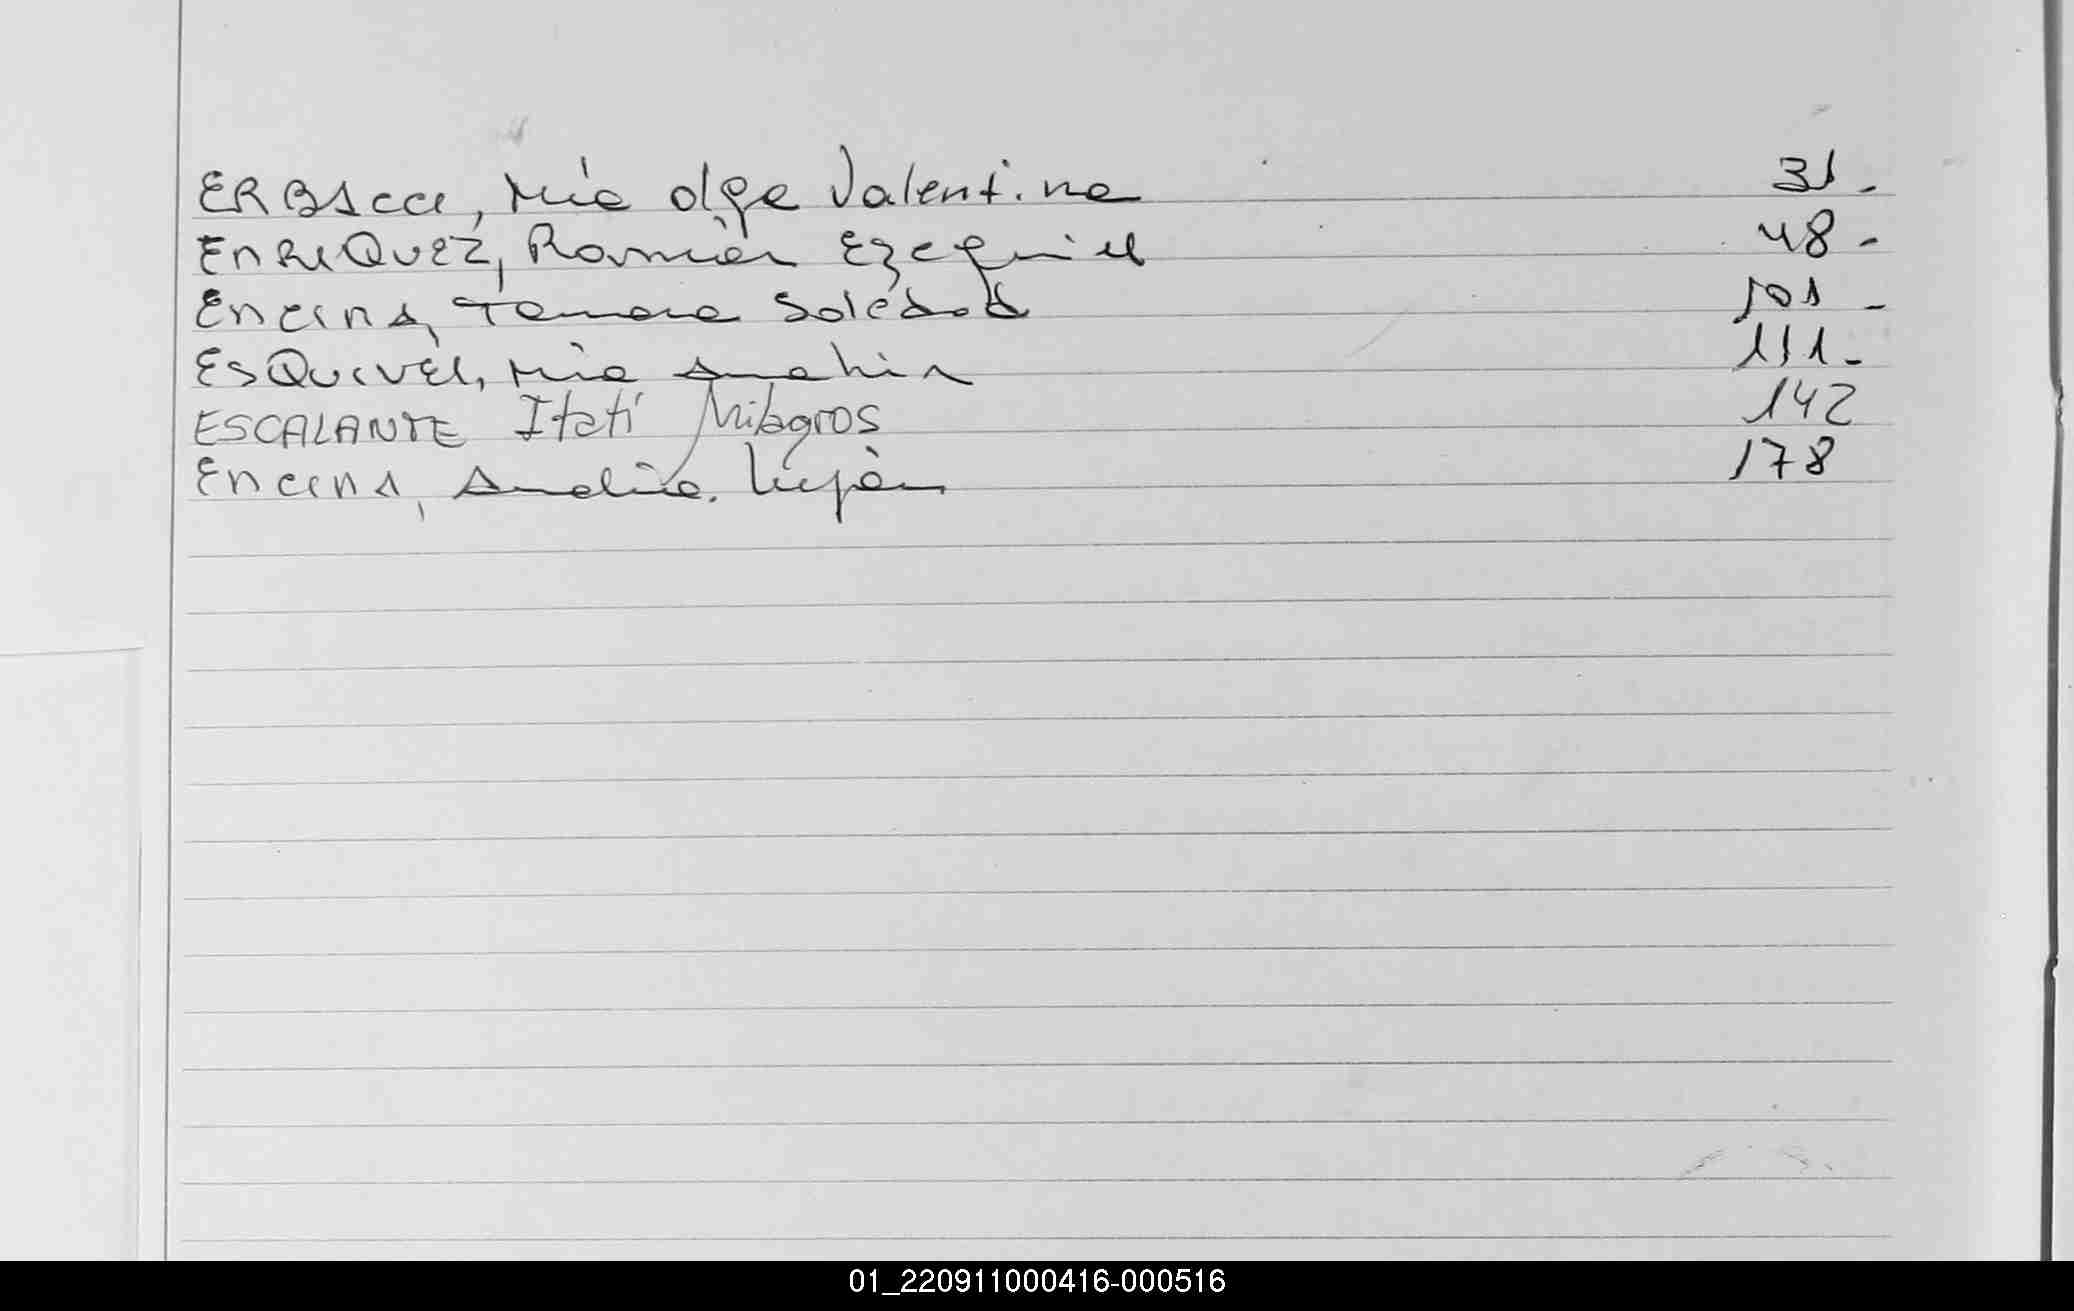 ERBACCI, Mía Olga Valentina 31.
EnRiQuEZ, Román Ezequiel 48-
Encina, Tamara Soledad 101-
EsQuivel, Mía Anahir 111-
ESCALANTE Itatí Milagros 142
Encina, Analía Luján 178
01_220911000416-000516